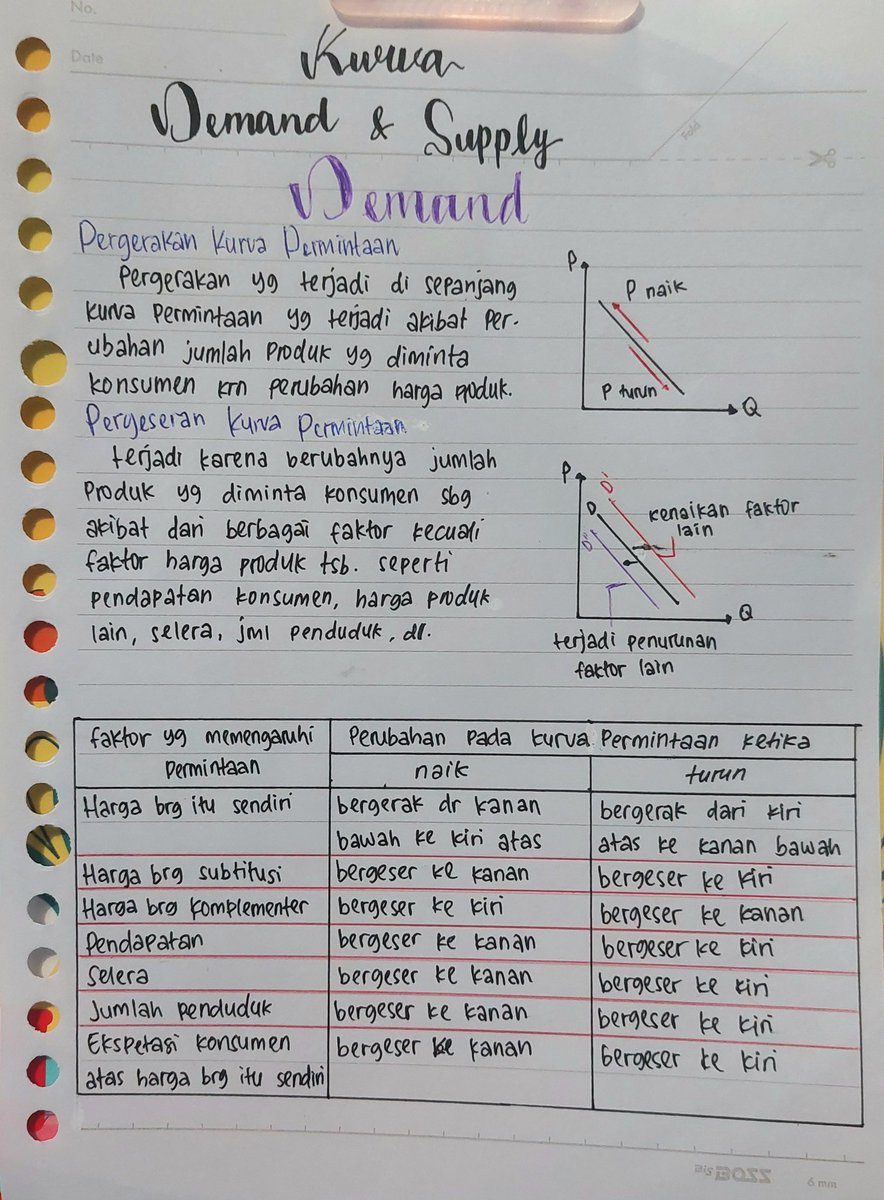 No.
Date
Kurva
Demand & Supply
Fold
Demand
Pergerakan Kurva Permintaan
Pergerakan yg terjadi di sepanjang
kurva permintaan yg terjadi akibat per-
ubahan jumlah produk yg diminta
konsumen krn perubahan harga produk.
P
P naik
P turun
Q
Pergeseran Kurva Permintaan
terjadi karena berubahnya jumlah
Produk yg diminta konsumen sbg
akibat dari berbagai faktor kecuali
faktor harga produk tsb. seperti
pendapatan konsumen, harga produk
lain, selera, jml penduduk, dll.
P
D'
D
D"
kenaikan faktor
lain
Q
terjadi penurunan
faktor lain
faktor yg memengaruhi
Permintaan
Perubahan pada kurva Permintaan ketika
naik
turun
Harga brg itu sendiri
bergerak dr kanan
bawah ke kiri atas
bergerak dari kiri
atas ke kanan bawah
Harga brg subtitusi
bergeser ke kanan
bergeser ke kiri
Harga brg komplementer
bergeser ke kiri
bergeser ke kanan
Pendapatan
bergeser ke kanan
bergeser ke kiri
Selera
bergeser ke kanan
bergeser ke kiri
Jumlah penduduk
bergeser ke kanan
bergeser ke kiri
Ekspetasi konsumen
atas harga brg itu sendiri
bergeser ke kanan
bergeser ke kiri
BigBOSS
6 mm